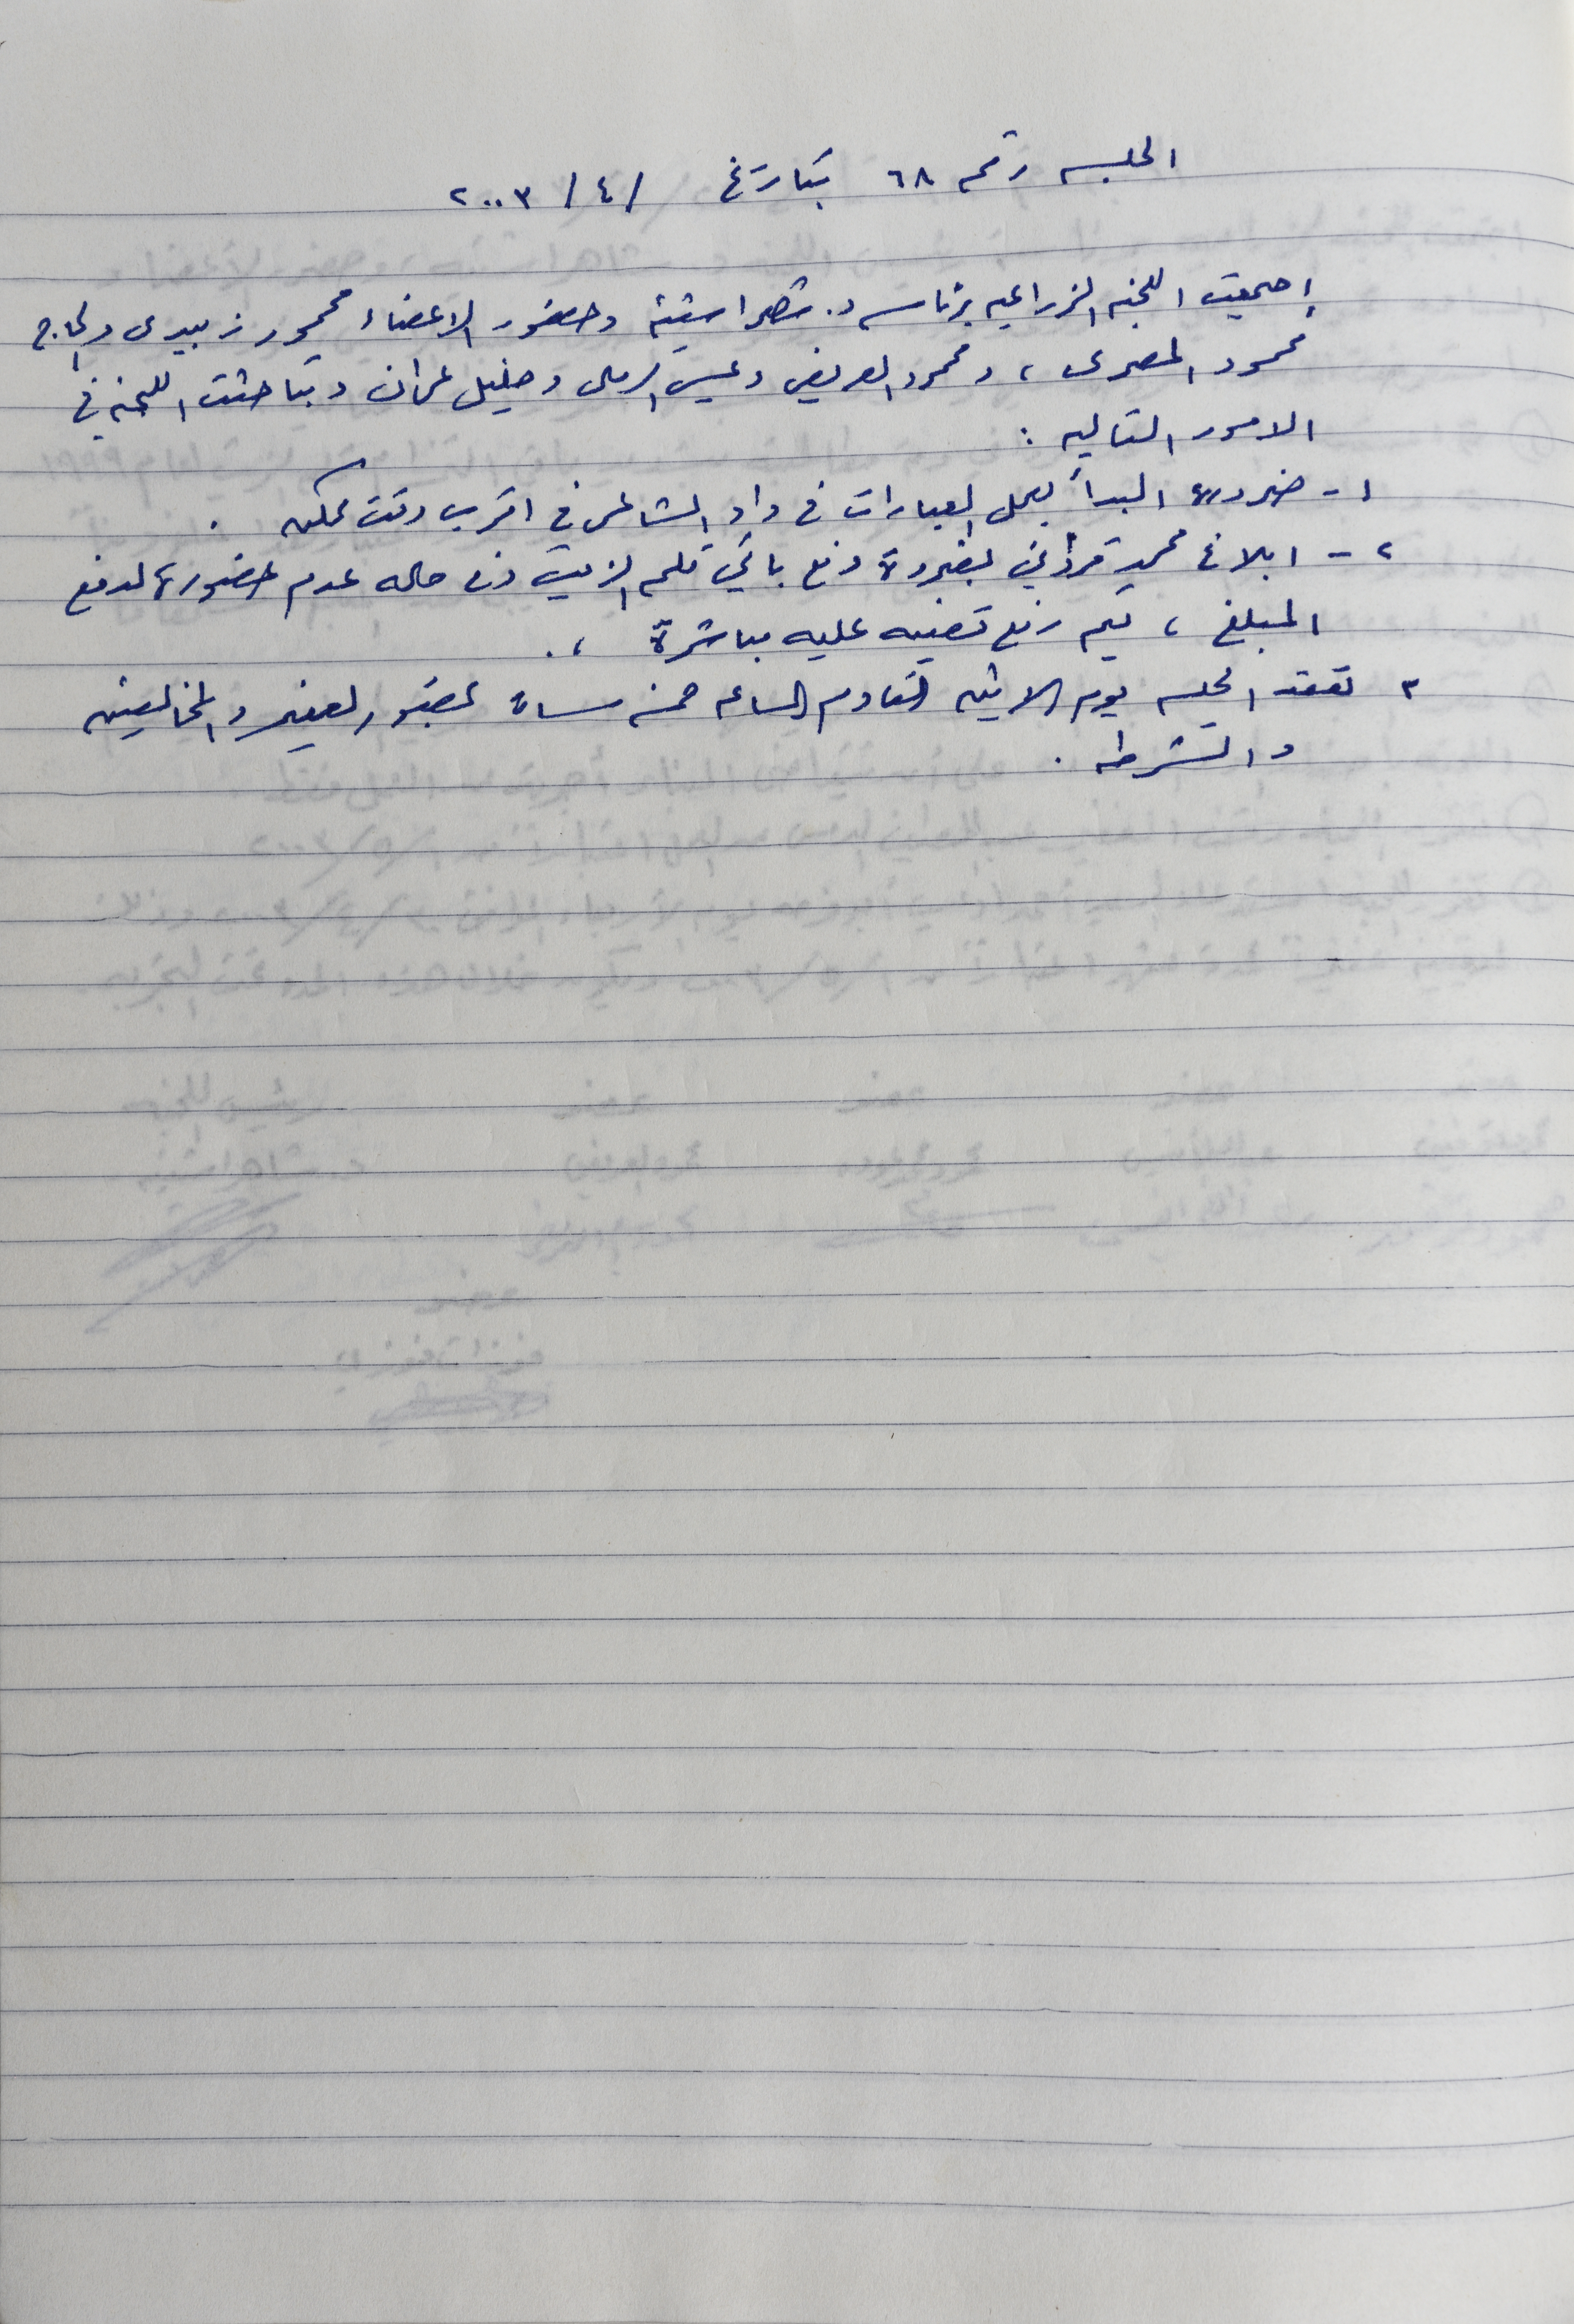 الجلسه رقم ٦٨ بتاريخ / ٤ / ٢٠٠٣
إجتمعت اللجنه الزراعيه برئاسه د. شاهر اشتيه وحضور الاعضاء محمود زبيدى والحاج
محمود المصرى ، ومحمود العريض وعيسى الرملى وخليل عمران وتباحثت اللجنه في
الامور التاليه :
١ - ضرورة البدأ بعمل العبارات في واد الشاعر في اقرب وقت ممكن .
٢ - ابلاغ محمد بضرورة دفع باقي الزيت وفي حاله عدم حضوره لدفع
المبلغ ، يتم رفع قضيه عليه مباشرة ، .
٣ تعقد الجلسه يوم الاثنين القادم الساعه خمسه مساءً بحضور الغفير والمخالفين
والشرطه .